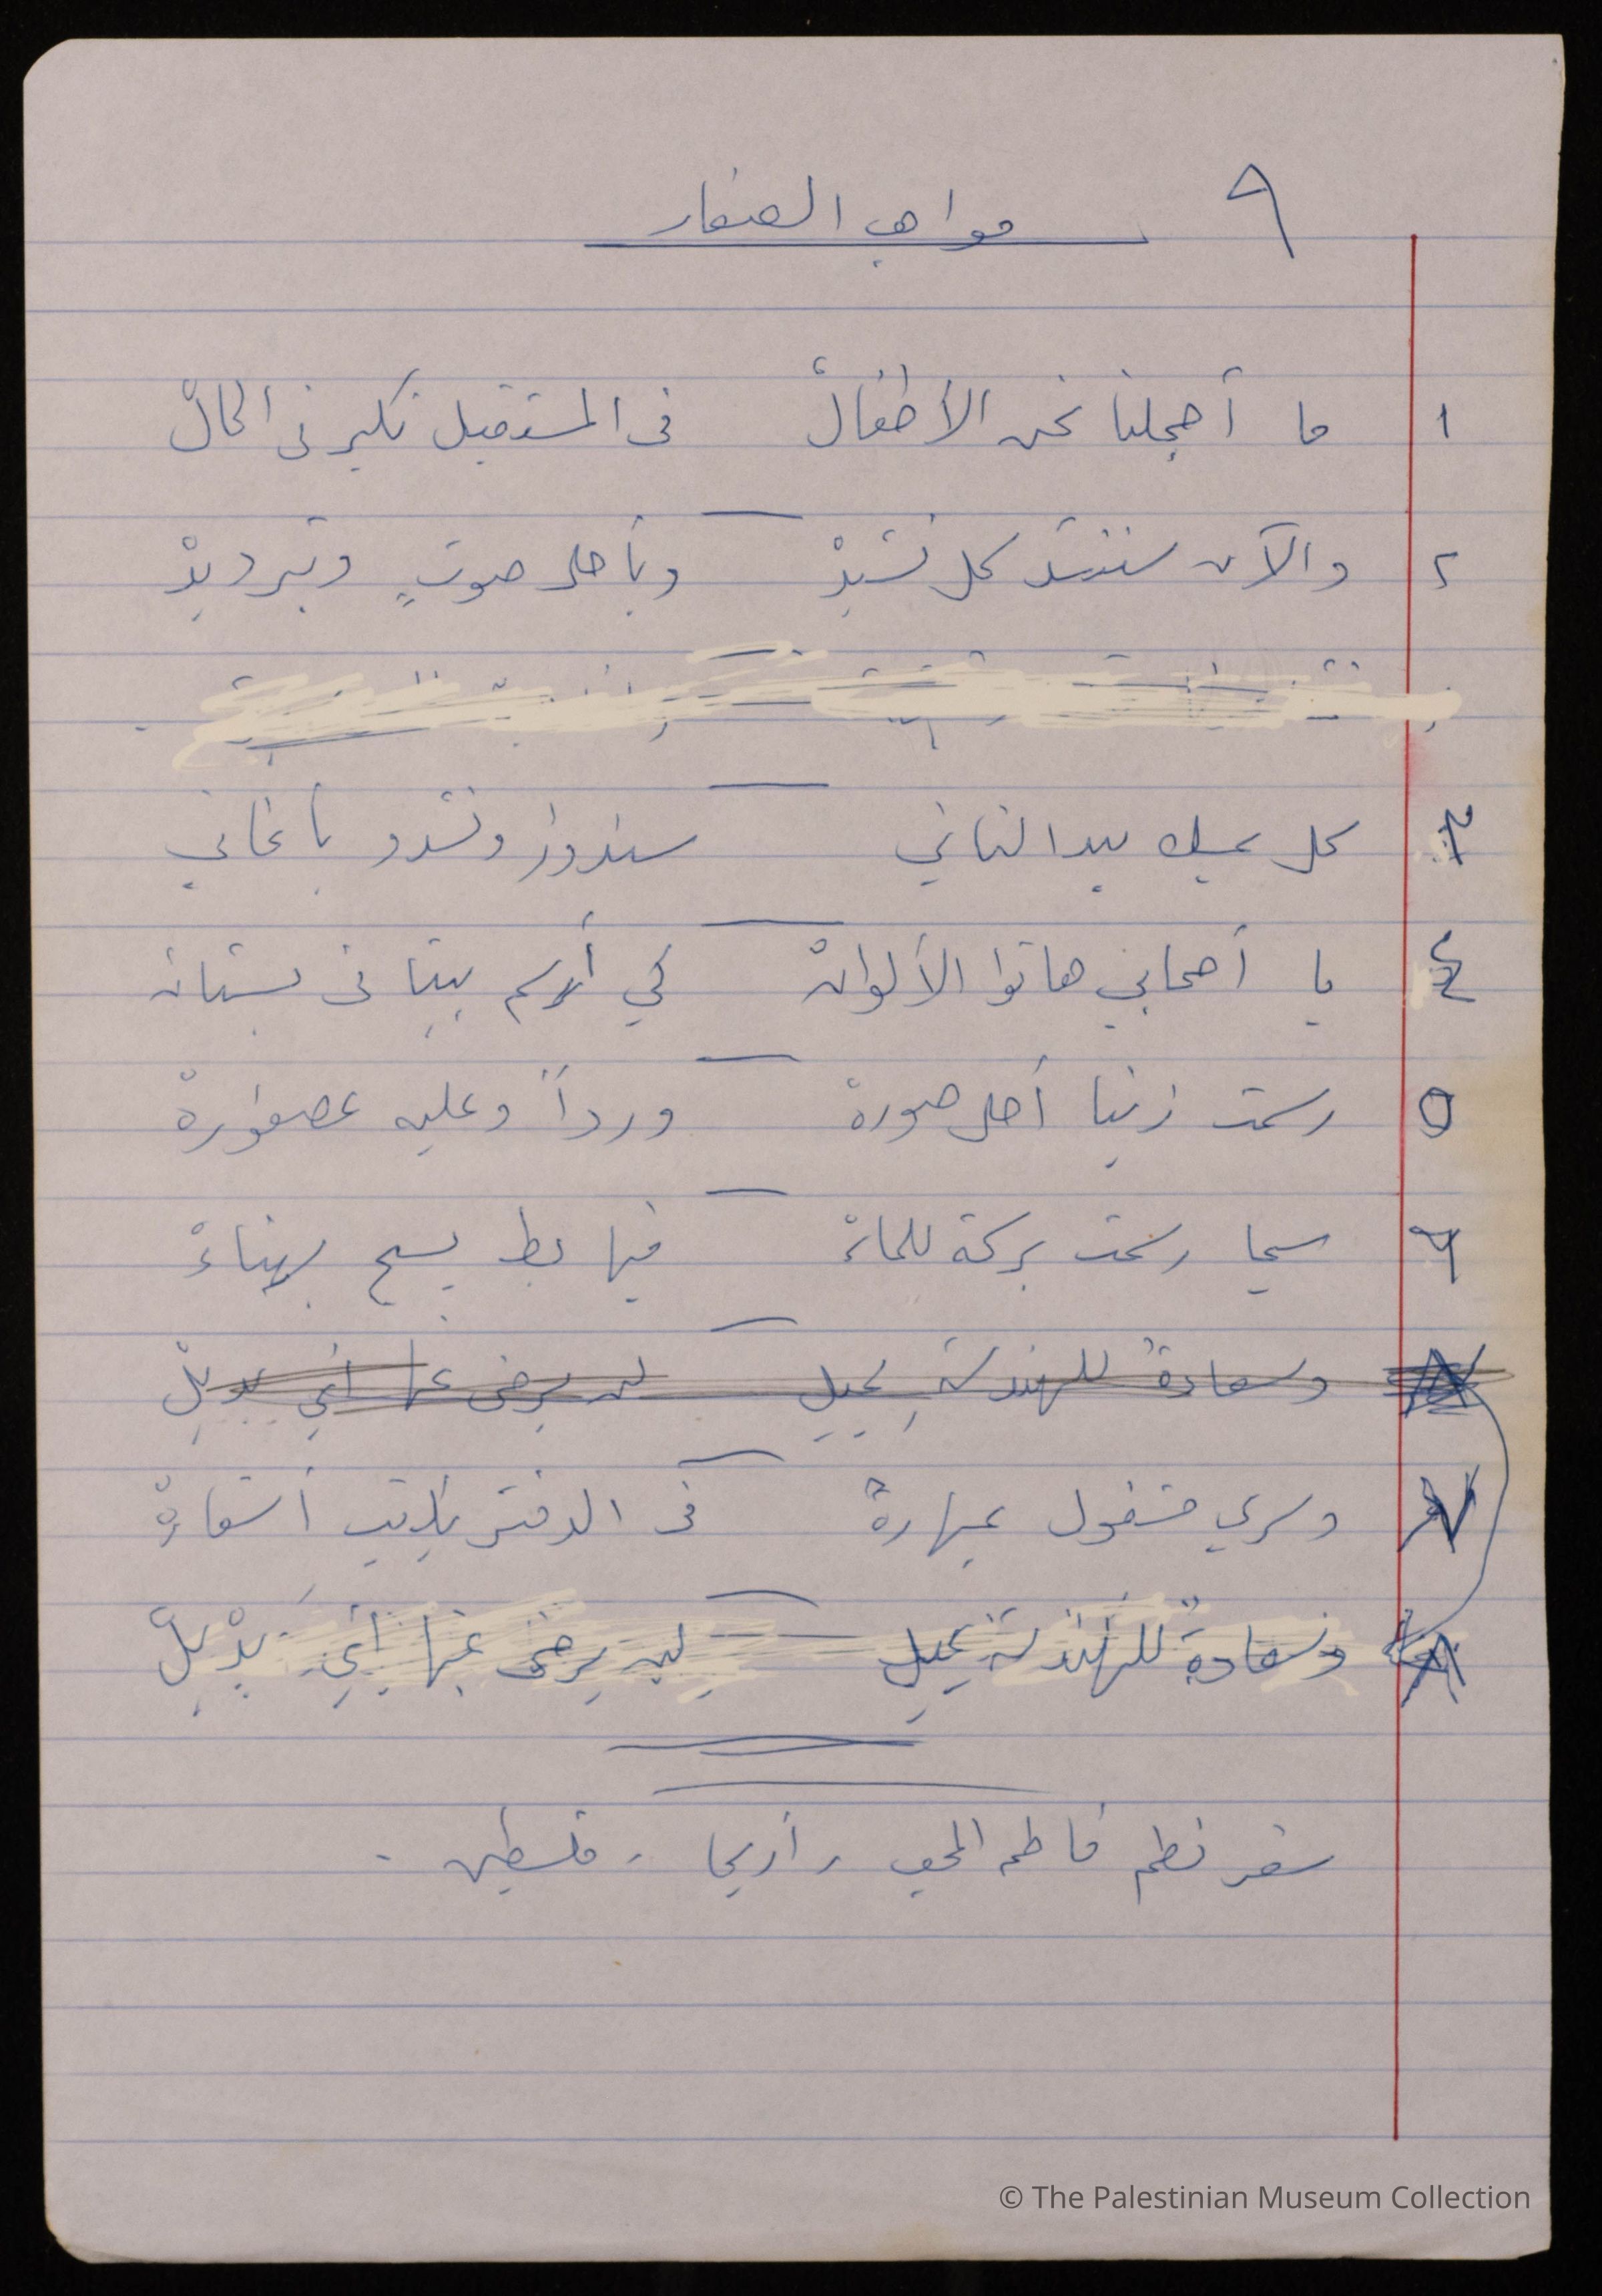 ٩ مواهب الصغار
١ ما أجملنا نحن الأطفالْ في المستقبل نكبر في الحالْ
٢ والآن سننشد كل نشيدْ وبأحلى صوتٍ وبترديدْ
٣ كل يمسك بيد الثاني سندور ونشدو بأغاني
٤ يا أصحابي هاتوا الألوانْ كي أرسم بيتا في بستان
٥ رسمت زينا أحلى صورة ورداً وعليه عصفورة
٦ سجا رسمت بركة للماءْ فيها بط يسبح بهناءْ
وسعادة للهندسة يميل لن يرضى عنها أي بديلْ
٧ وسري مشغول بمهارة في الدفتر يكتب أشعاره
٨ وسعادة للهندسة يميل لن يرضى عنها أي بديلْ
شعر ونظم فاطمة المحب، أريحا، فلسطين.
© The Palestinian Museum Collection